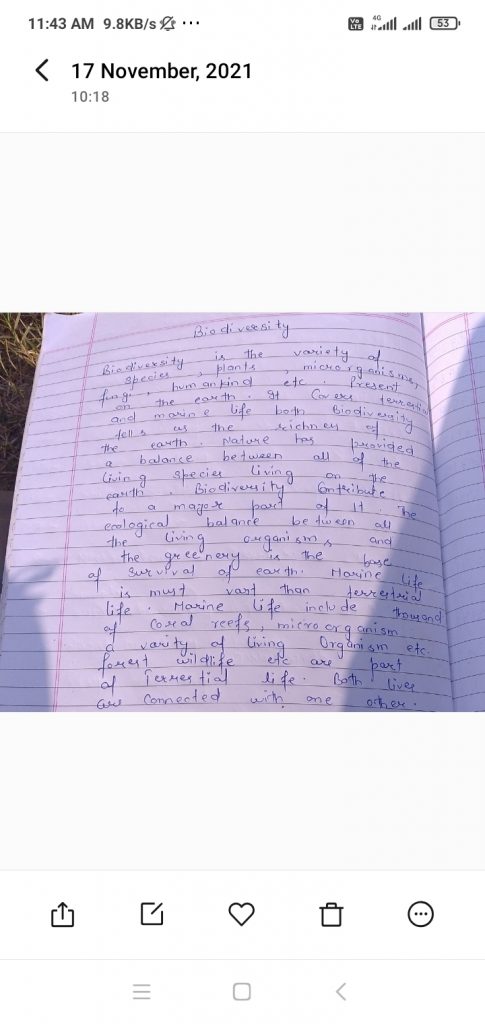 11:43 AM 9.8KB/s ...
Vo LTE 4G 53
17 November, 2021
10:18
Biodiversity
Biodiversity is the variety of
species, plants, microorganisms,
fungi, humankind etc. Present
on the earth. It Covers terrestial
and marine life both Biodiversity
tells us the richness of
the earth. Nature has provided
a balance between all of the
living species living on the
earth. Biodiversity Contribute
to a major part of It. The
ecological balance between all
the living organisms and
the greenery is the base
of survival of earth. Marine life
is must vast than terrestrial
life. Marine life include thousand
of Coral reefs, microorganism
a varity of living Organism etc.
forest wildlife etc are part
of Terrestial life. Both lives
are Connected with one other.